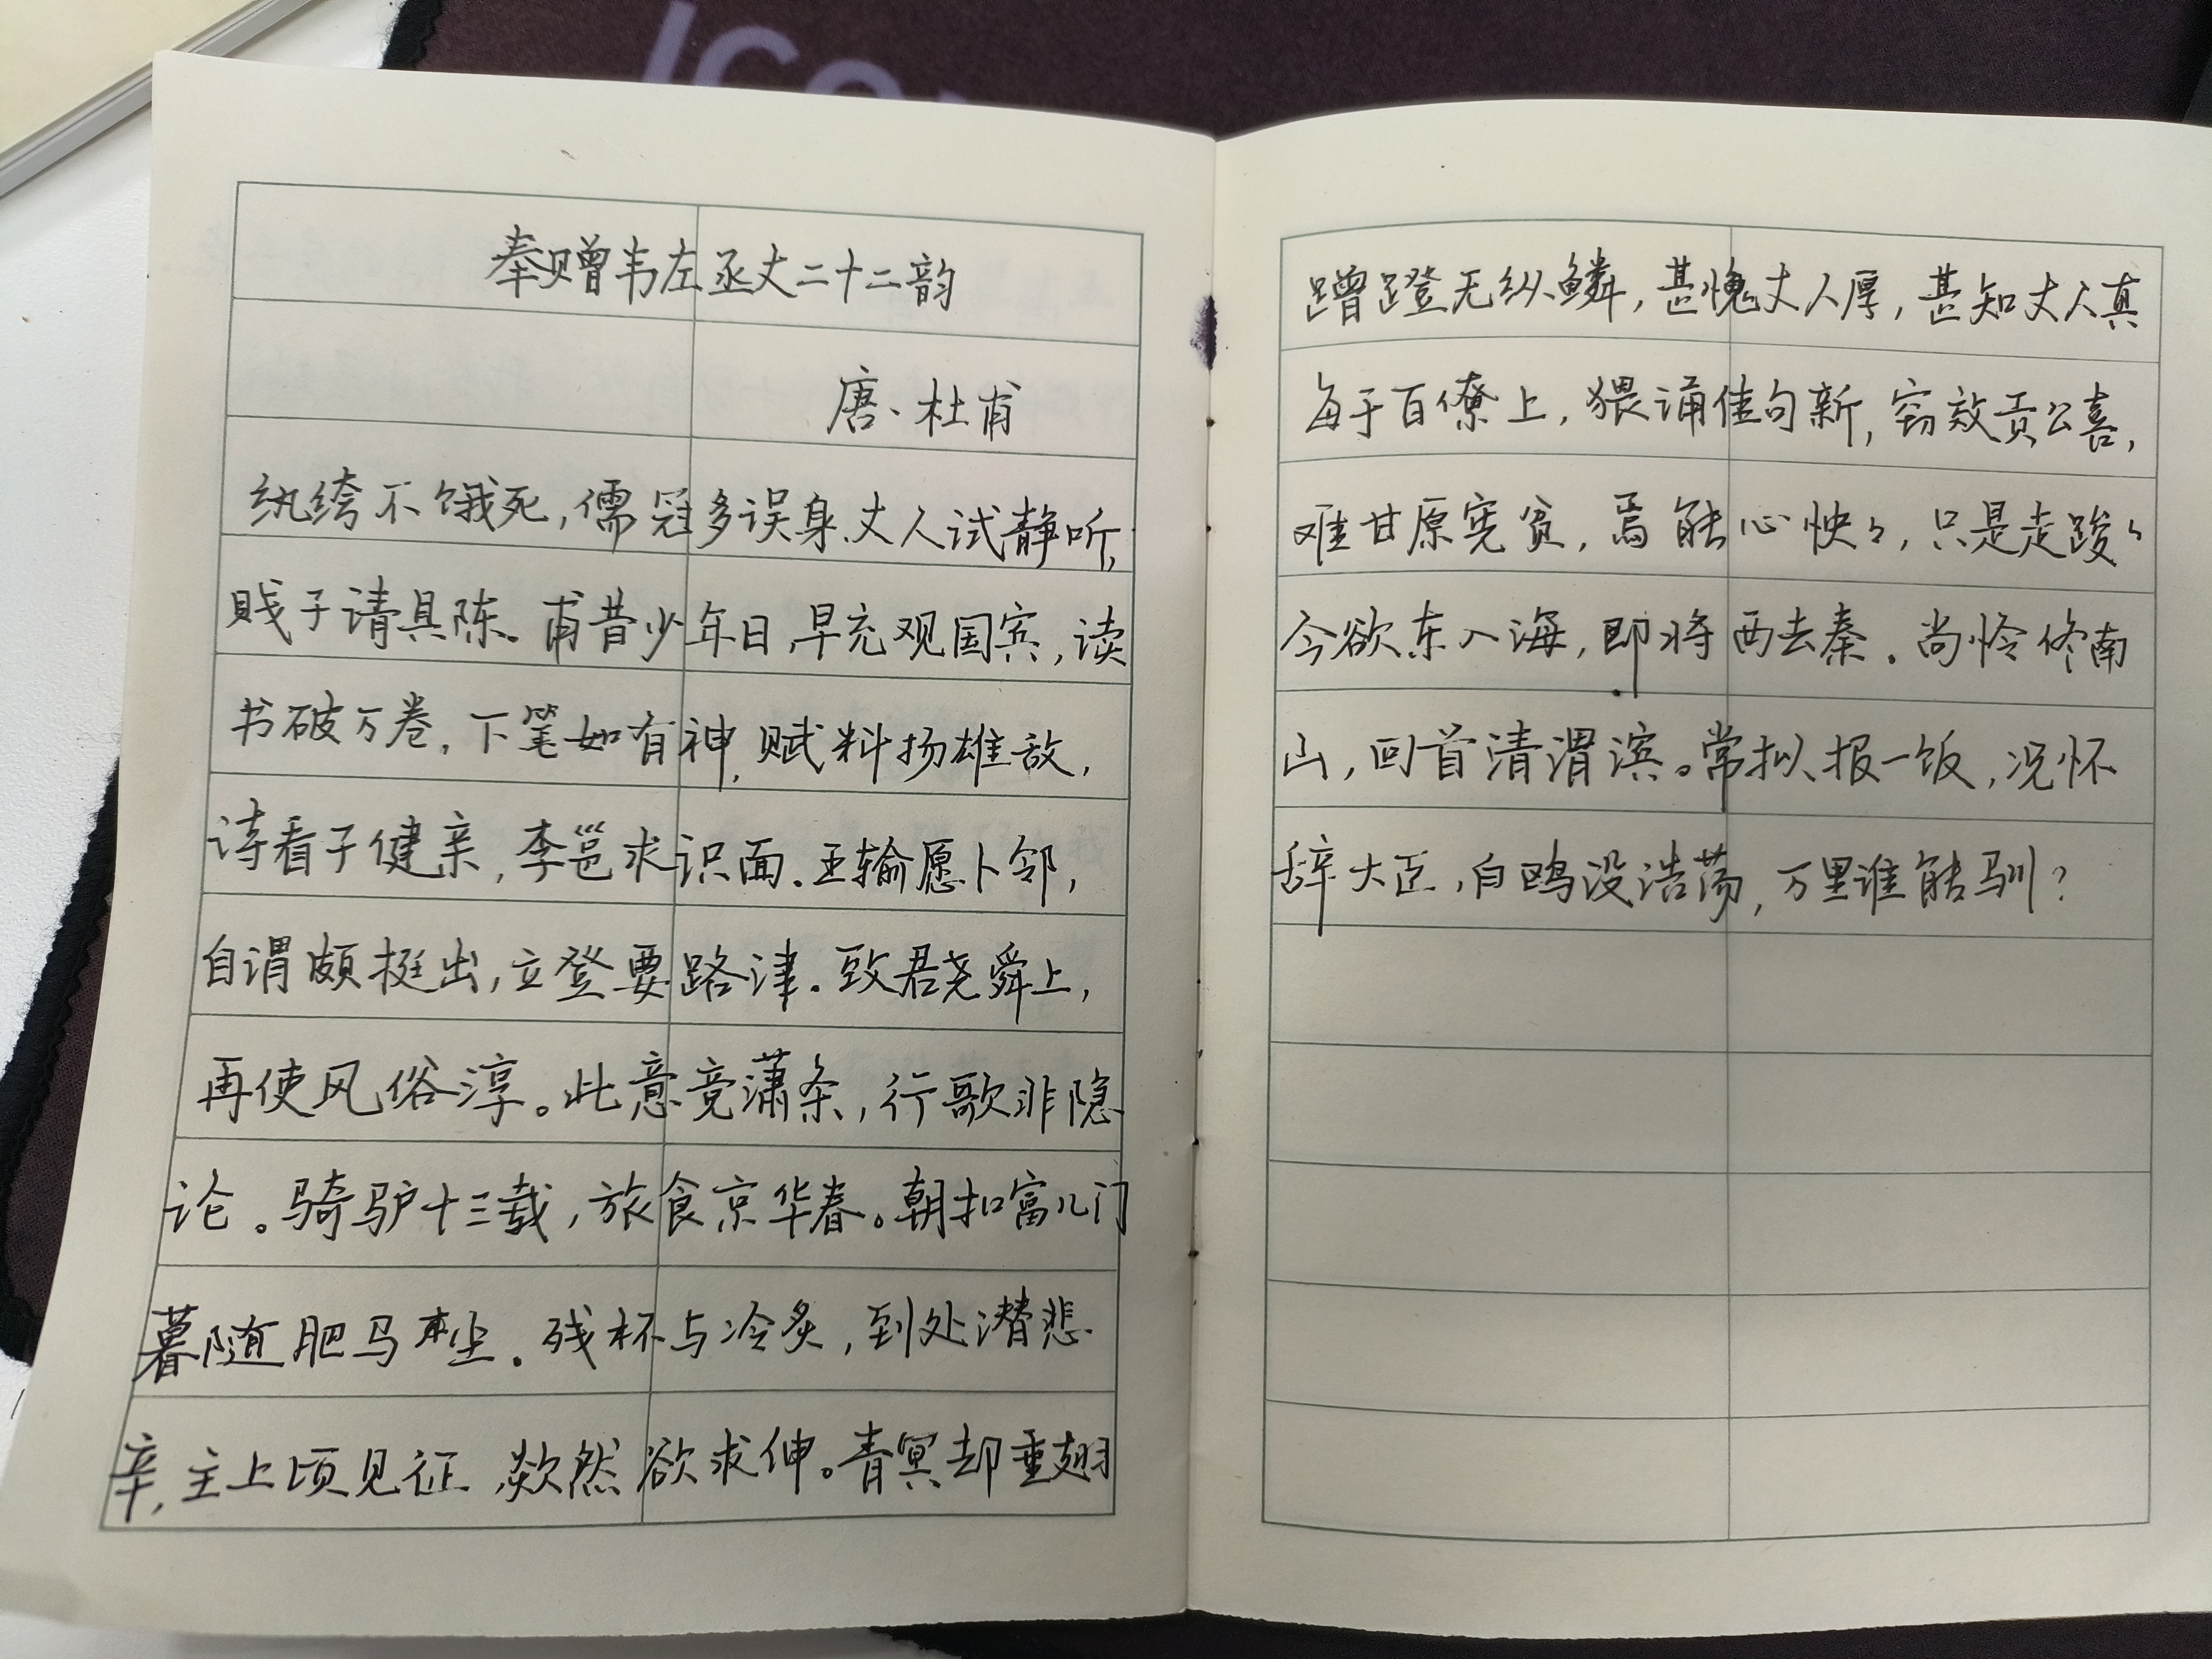 奉赠韦左丞丈二十二韵
唐、杜甫
纨绔不饿死,儒冠多误身.丈人试静听,
贱子请具陈。甫昔少年日,早充观国宾,读
书破万卷,下笔如有神,赋料扬雄敌,
诗看子健亲,李邕求识面.王输愿卜邻,
自谓颇挺出,立登要路津.致君尧舜上,
再使风俗淳。此意竟萧条,行歌非隐
论。骑驴十三载,旅食京华春。朝扣富儿门
暮随肥马尘.残杯与冷炙,到处潜悲
辛,主上顷见征,欻然欲求伸。青冥却垂翅
蹭蹬无纵鳞,甚愧丈人厚,甚知丈人真
每于百僚上,猥诵佳句新,窃效贡公喜,
难甘原宪贫,焉能心怏々,只是走踆々
今欲东入海,即将西去秦.尚怜终南
山,回首清渭滨。常拟报一饭,况怀
辞大臣,白鸥没浩荡,万里谁能驯?